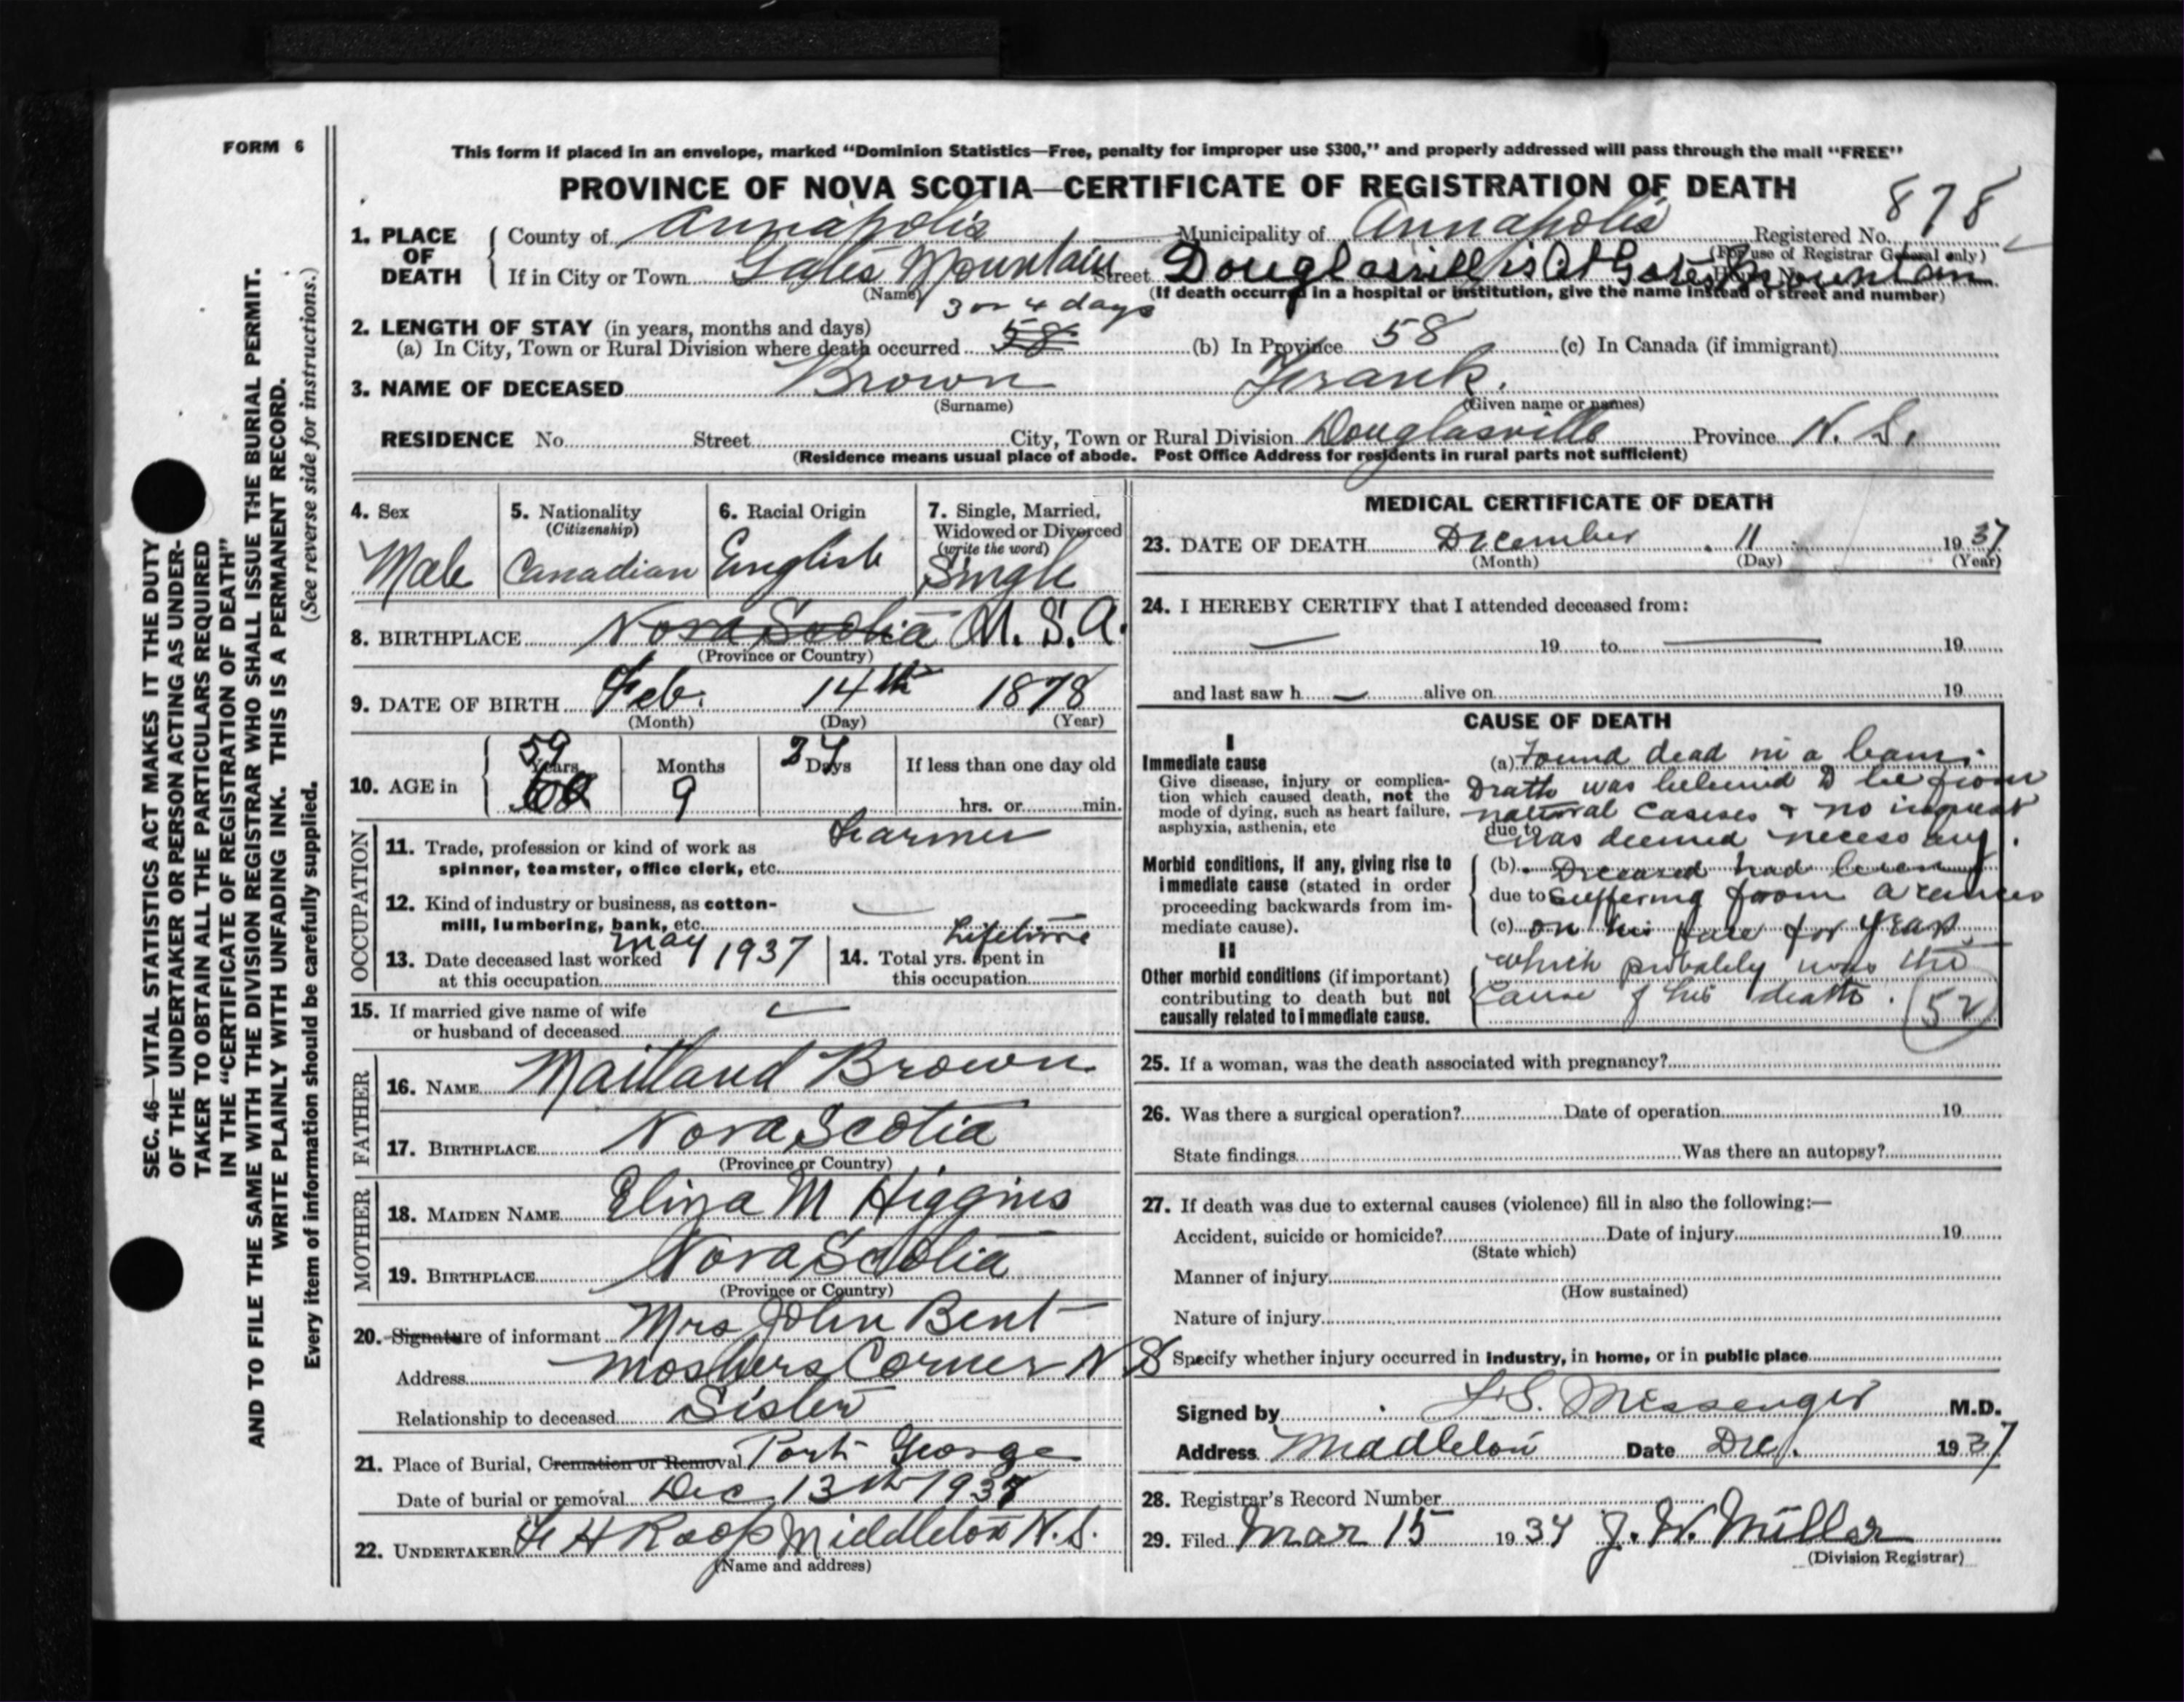 FORM 6
This form if placed in an envelope, marked "Dominion Statistics—Free, penalty for improper use $300," and properly addressed will pass through the mail "FREE"
PROVINCE OF NOVA SCOTIA—CERTIFICATE OF REGISTRATION OF DEATH
878
1. PLACE OF DEATH
County of Annapolis Municipality of Annapolis Registered No.
(For use of Registrar General only)
If in City or Town Gates Mountain Street Douglasville is At Gates Mountain
(Name) (If death occurred in a hospital or institution, give the name instead of street and number)
3 or 4 days
2. LENGTH OF STAY (in years, months and days)
(a) In City, Town or Rural Division where death occurred 58 (b) In Province 58 (c) In Canada (if immigrant)
3. NAME OF DECEASED Brown Frank.
(Surname) (Given name or names)
RESIDENCE No. Street City, Town or Rural Division Douglasville Province N. S.
(Residence means usual place of abode. Post Office Address for residents in rural parts not sufficient)
4. Sex
Male
5. Nationality
(Citizenship)
Canadian
6. Racial Origin
English
7. Single, Married,
Widowed or Divorced
(write the word)
Single
8. BIRTHPLACE Nova Scotia U. S. A.
(Province or Country)
9. DATE OF BIRTH Feb. 14th 1878
(Month) (Day) (Year)
10. AGE in
59
Years
60
Months
9
Days
If less than one day old
hrs. or min.
OCCUPATION
11. Trade, profession or kind of work as Farmer
spinner, teamster, office clerk, etc.
12. Kind of industry or business, as cotton-
mill, lumbering, bank, etc.
13. Date deceased last worked May 1937
at this occupation
14. Total yrs. spent in Lifetime
this occupation
15. If married give name of wife
or husband of deceased
FATHER
16. NAME Maitland Brown
17. BIRTHPLACE Nova Scotia
(Province or Country)
MOTHER
18. MAIDEN NAME Eliza M Higgins
19. BIRTHPLACE Nova Scotia
(Province or Country)
20. Signature of informant Mrs John Bent
Address Moshers Corner N S
Relationship to deceased Sister
21. Place of Burial, Cremation or Removal Port George
Date of burial or removal Dec 13th 1937
22. UNDERTAKER H Roop Middleton N.S.
(Name and address)
MEDICAL CERTIFICATE OF DEATH
23. DATE OF DEATH December 11 1937
(Month) (Day) (Year)
24. I HEREBY CERTIFY that I attended deceased from:
19 to 19
and last saw h alive on 19
CAUSE OF DEATH
I
Immediate cause
Give disease, injury or complica-
tion which caused death, not the
mode of dying, such as heart failure,
asphyxia, asthenia, etc
Morbid conditions, if any, giving rise to
immediate cause (stated in order
proceeding backwards from im-
mediate cause).
II
Other morbid conditions (if important)
contributing to death but not
causally related to immediate cause.
(a) Found dead in a barn.
Death was believed to be from
natural causes & no inquest
due to was deemed necessary.
(b) Deceased had been
due to suffering from a cancer
(c) on his face for years
which probably was the
cause of his death. (52)
25. If a woman, was the death associated with pregnancy?
26. Was there a surgical operation? Date of operation 19
State findings Was there an autopsy?
27. If death was due to external causes (violence) fill in also the following:—
Accident, suicide or homicide? Date of injury 19
(State which)
Manner of injury
(How sustained)
Nature of injury
Specify whether injury occurred in industry, in home, or in public place
Signed by Messenger M.D.
Address Middleton Date Dec. 1937
28. Registrar's Record Number
29. Filed Mar 15 19 J. W. Miller
(Division Registrar)
SEC. 46—VITAL STATISTICS ACT MAKES IT THE DUTY
OF THE UNDERTAKER OR PERSON ACTING AS UNDER-
TAKER TO OBTAIN ALL THE PARTICULARS REQUIRED
IN THE "CERTIFICATE OF REGISTRATION OF DEATH"
AND TO FILE THE SAME WITH THE DIVISION REGISTRAR WHO SHALL ISSUE THE BURIAL PERMIT.
WRITE PLAINLY WITH UNFADING INK. THIS IS A PERMANENT RECORD.
Every item of information should be carefully supplied. (See reverse side for instructions.)